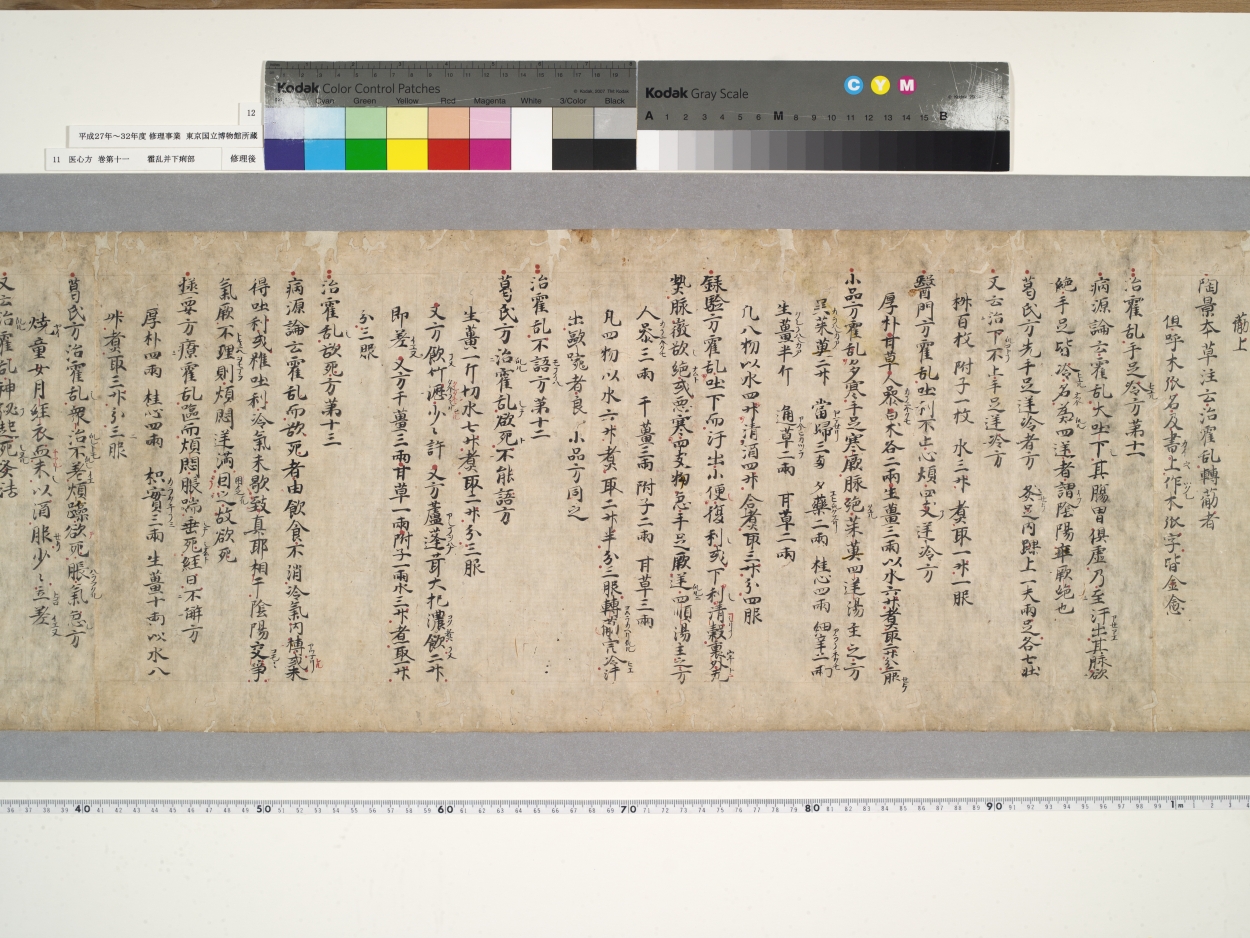 Kodak Color Control Patches
Cyan Green Yellow Red Magenta White 3/Color Black
Kodak Gray Scale
C Y M
A 1 2 3 4 5 6 M 8 9 10 11 12 13 14 15 B
12
平成27年～32年度 修理事業 東京国立博物館所蔵
11 医心方 巻第十一 霍乱并下痢部 修理後
筋上
陶景本草注云治霍乱轉筋者
但呼木瓜名及書上作木瓜字皆愈
治霍乱手足冷方第十一
病源論云霍乱大吐下其腸胃俱虛乃至汗出其脉欲
絶手足皆冷名為四逆者謂陰陽卒厥絶也
葛氏方先手足逆冷者方 灸足內踝上一夫兩足各七壮
又云治下不止手足逆冷方
椒百枚 附子一枚 水三升煮取一升一服
醫門方霍乱吐利不止心煩四支逆冷方
厚朴甘草人參白朮各二兩生薑三兩以水六升煮取二升分三服
小品方霍乱多寒手足寒厥脉絶茱萸四逆湯主之方
吳茱萸二升 當歸三兩 夕藥二兩 桂心四兩 細辛二兩
生薑半斤 通草二兩 甘草二兩
凡八物以水四升清酒四升合煮取三升分四服
録驗方霍乱吐下而汗出小便復利或下利清穀裏外无
熱脉微欲絶或悪寒四支拘急手足厥逆四順湯主之方
人參三兩 干薑三兩 附子二兩 甘草三兩
凡四物以水六升煮取二升半分三服轉筋完冷汗
出歐啘者良 小品方同之
治霍乱不語方第十二
葛氏方治霍乱欲死不能語方
生薑一斤切水七升煮取二升分三服
又方飲竹瀝少少許 又方蘆蓬茸大把濃飲二升
即差 又方干薑二兩甘草一兩附子一兩水三升煮取一升
分三服
治霍乱欲死方第十三
病源論云霍乱而欲死者由飲食不消冷氣內搏或未
得吐利或雖吐利冷氣未歇致真耶相干陰陽交爭
氣厥不理則煩悶逆滿困之故欲死
極要方療霍乱嘔而煩悶脹喘垂死経日不解方
厚朴四兩 桂心四兩 枳實三兩 生薑十兩 以水八
升煮取三升分三服
葛氏方治霍乱衆治不差煩躁欲死脹氣急方
燒童女月経衣血末以酒服少々立差
又云治霍乱神秘起死灸法
36 37 38 39 40 50 60 70 80 90 1m